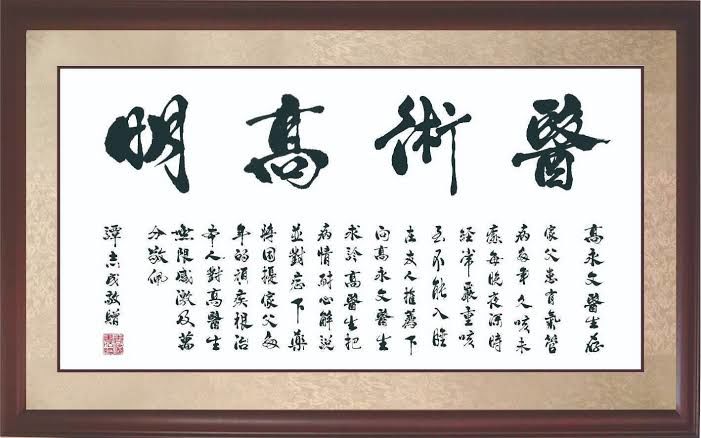 醫術高明
高永文醫生
家父患有氣管
病多年久咳未
療每晚夜深時
經常嚴重咳
至不能入睡
在友人推薦下
向高永文醫生
求診高醫生把
病情耐心解說
並對症下藥
將困擾家父多
年的頑疾根治
本人對高醫生
無限感激及萬
分敬佩
譚志成敬贈